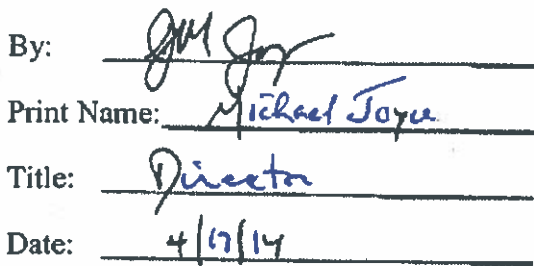 By:
Print Name: Michael Joyce
Title: Director
Date: 4/17/14